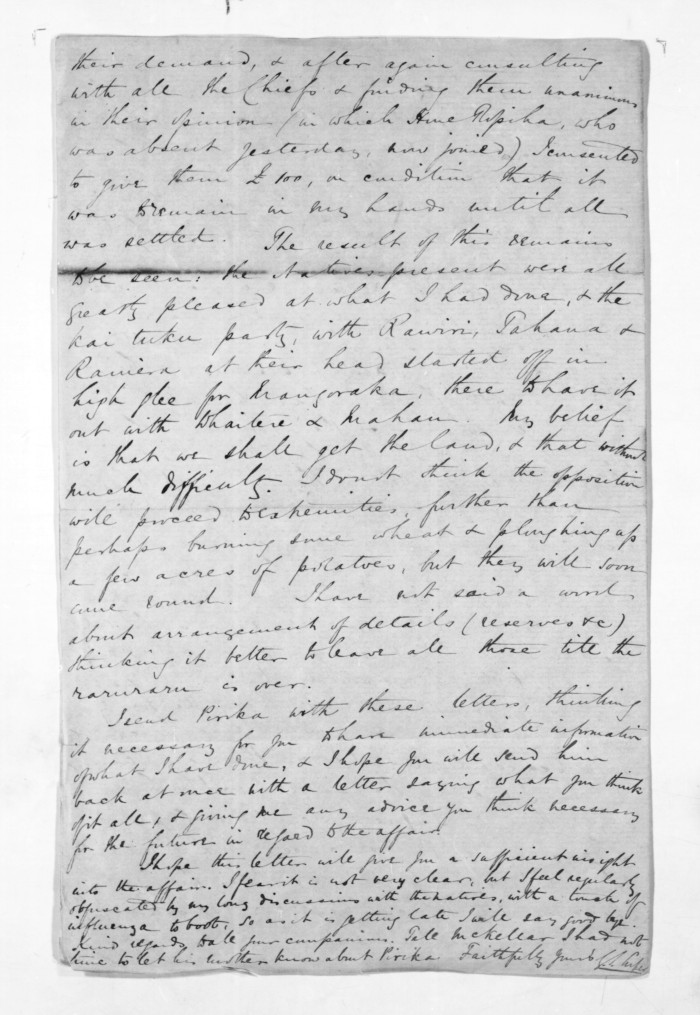 their demand, & after again consulting
with all the Chiefs & finding them unanimous
in their opinion (in which Hine Ripiha, who
was absent yesterday, now joined) I consented
to give them £100, on condition that it
was to remain in my hands until all
was settled. The result of this remains
to be seen: the Natives present were all
greatly pleased at what I had done, & the
kai tuku party, with Rawiri, Tahana &
Raniera at their head started off in
high glee for Mangoraka, there to have it
out with Whaitere & Mahau. My belief
is that we shall get the land, & that without
much difficulty. I don't think the opposition
will proceed to extremities, further than
perhaps burning some wheat & ploughing up
a few acres of potatoes, but they will soon
come round. I have not said a word
about arrangement of details (reserves &c)
thinking it better to leave all those till the
raruraru is over.
I send Pirika with these letters, thinking
it necessary for you to have immediate information
of what I have done, & I hope you will send him
back at once with a letter saying what you think
of it all, & giving me any advice you think necessary
for the future in regard to the affair.
I hope this letter will give you a sufficient insight
into the affair. I fear it is not very clear, but I feel regularly
obfuscated by my long discussions with the natives, with a touch of
influenza to boot, so as it is getting late I will say good bye.
Kind regards to all your companions. Tell McKellar I had not
time to let his mother know about Pirika Faithfully yours